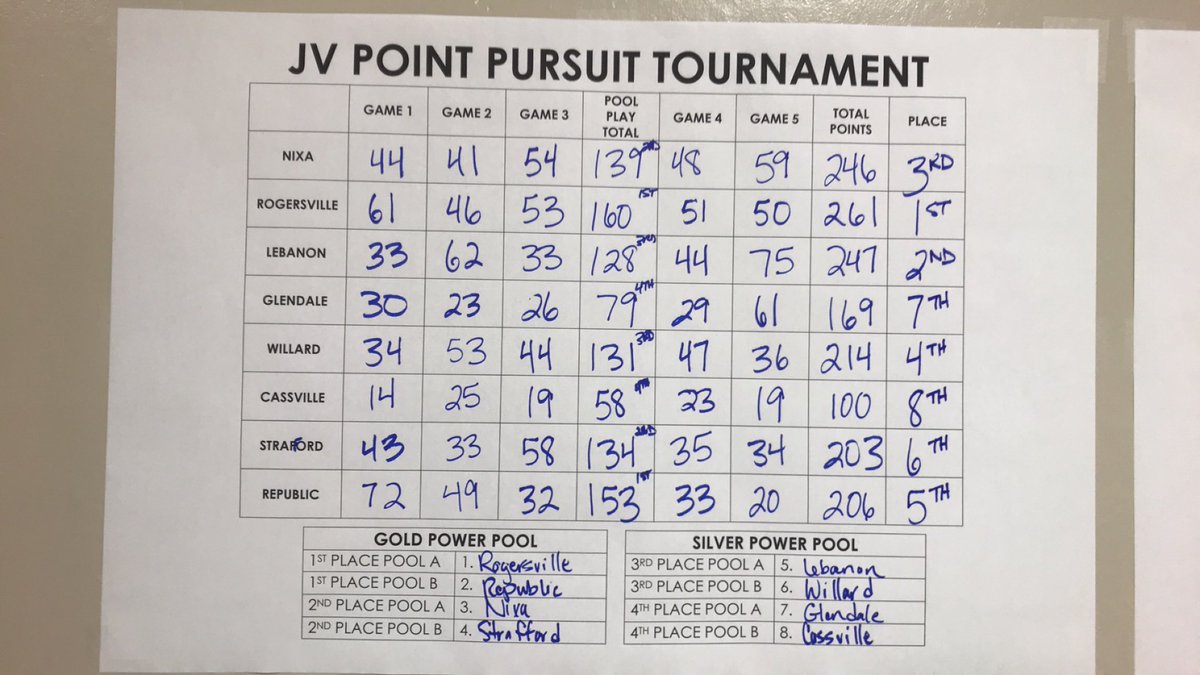 JV POINT PURSUIT TOURNAMENT
GAME 1 GAME 2 GAME 3 POOL PLAY TOTAL GAME 4 GAME 5 TOTAL POINTS PLACE
NIXA 44 41 54 139 2ND 48 59 246 3RD
ROGERSVILLE 61 46 53 160 1ST 51 50 261 1ST
LEBANON 33 62 33 128 3RD 44 75 247 2ND
GLENDALE 30 23 26 79 4TH 29 61 169 7TH
WILLARD 34 53 44 131 3RD 47 36 214 4TH
CASSVILLE 14 25 19 58 4TH 23 19 100 8TH
STRAFFORD 43 33 58 134 2ND 35 34 203 6TH
REPUBLIC 72 49 32 153 1ST 33 20 206 5TH
GOLD POWER POOL
1ST PLACE POOL A 1. Rogersville
1ST PLACE POOL B 2. Republic
2ND PLACE POOL A 3. Nixa
2ND PLACE POOL B 4. Strafford
SILVER POWER POOL
3RD PLACE POOL A 5. Lebanon
3RD PLACE POOL B 6. Willard
4TH PLACE POOL A 7. Glendale
4TH PLACE POOL B 8. Cassville